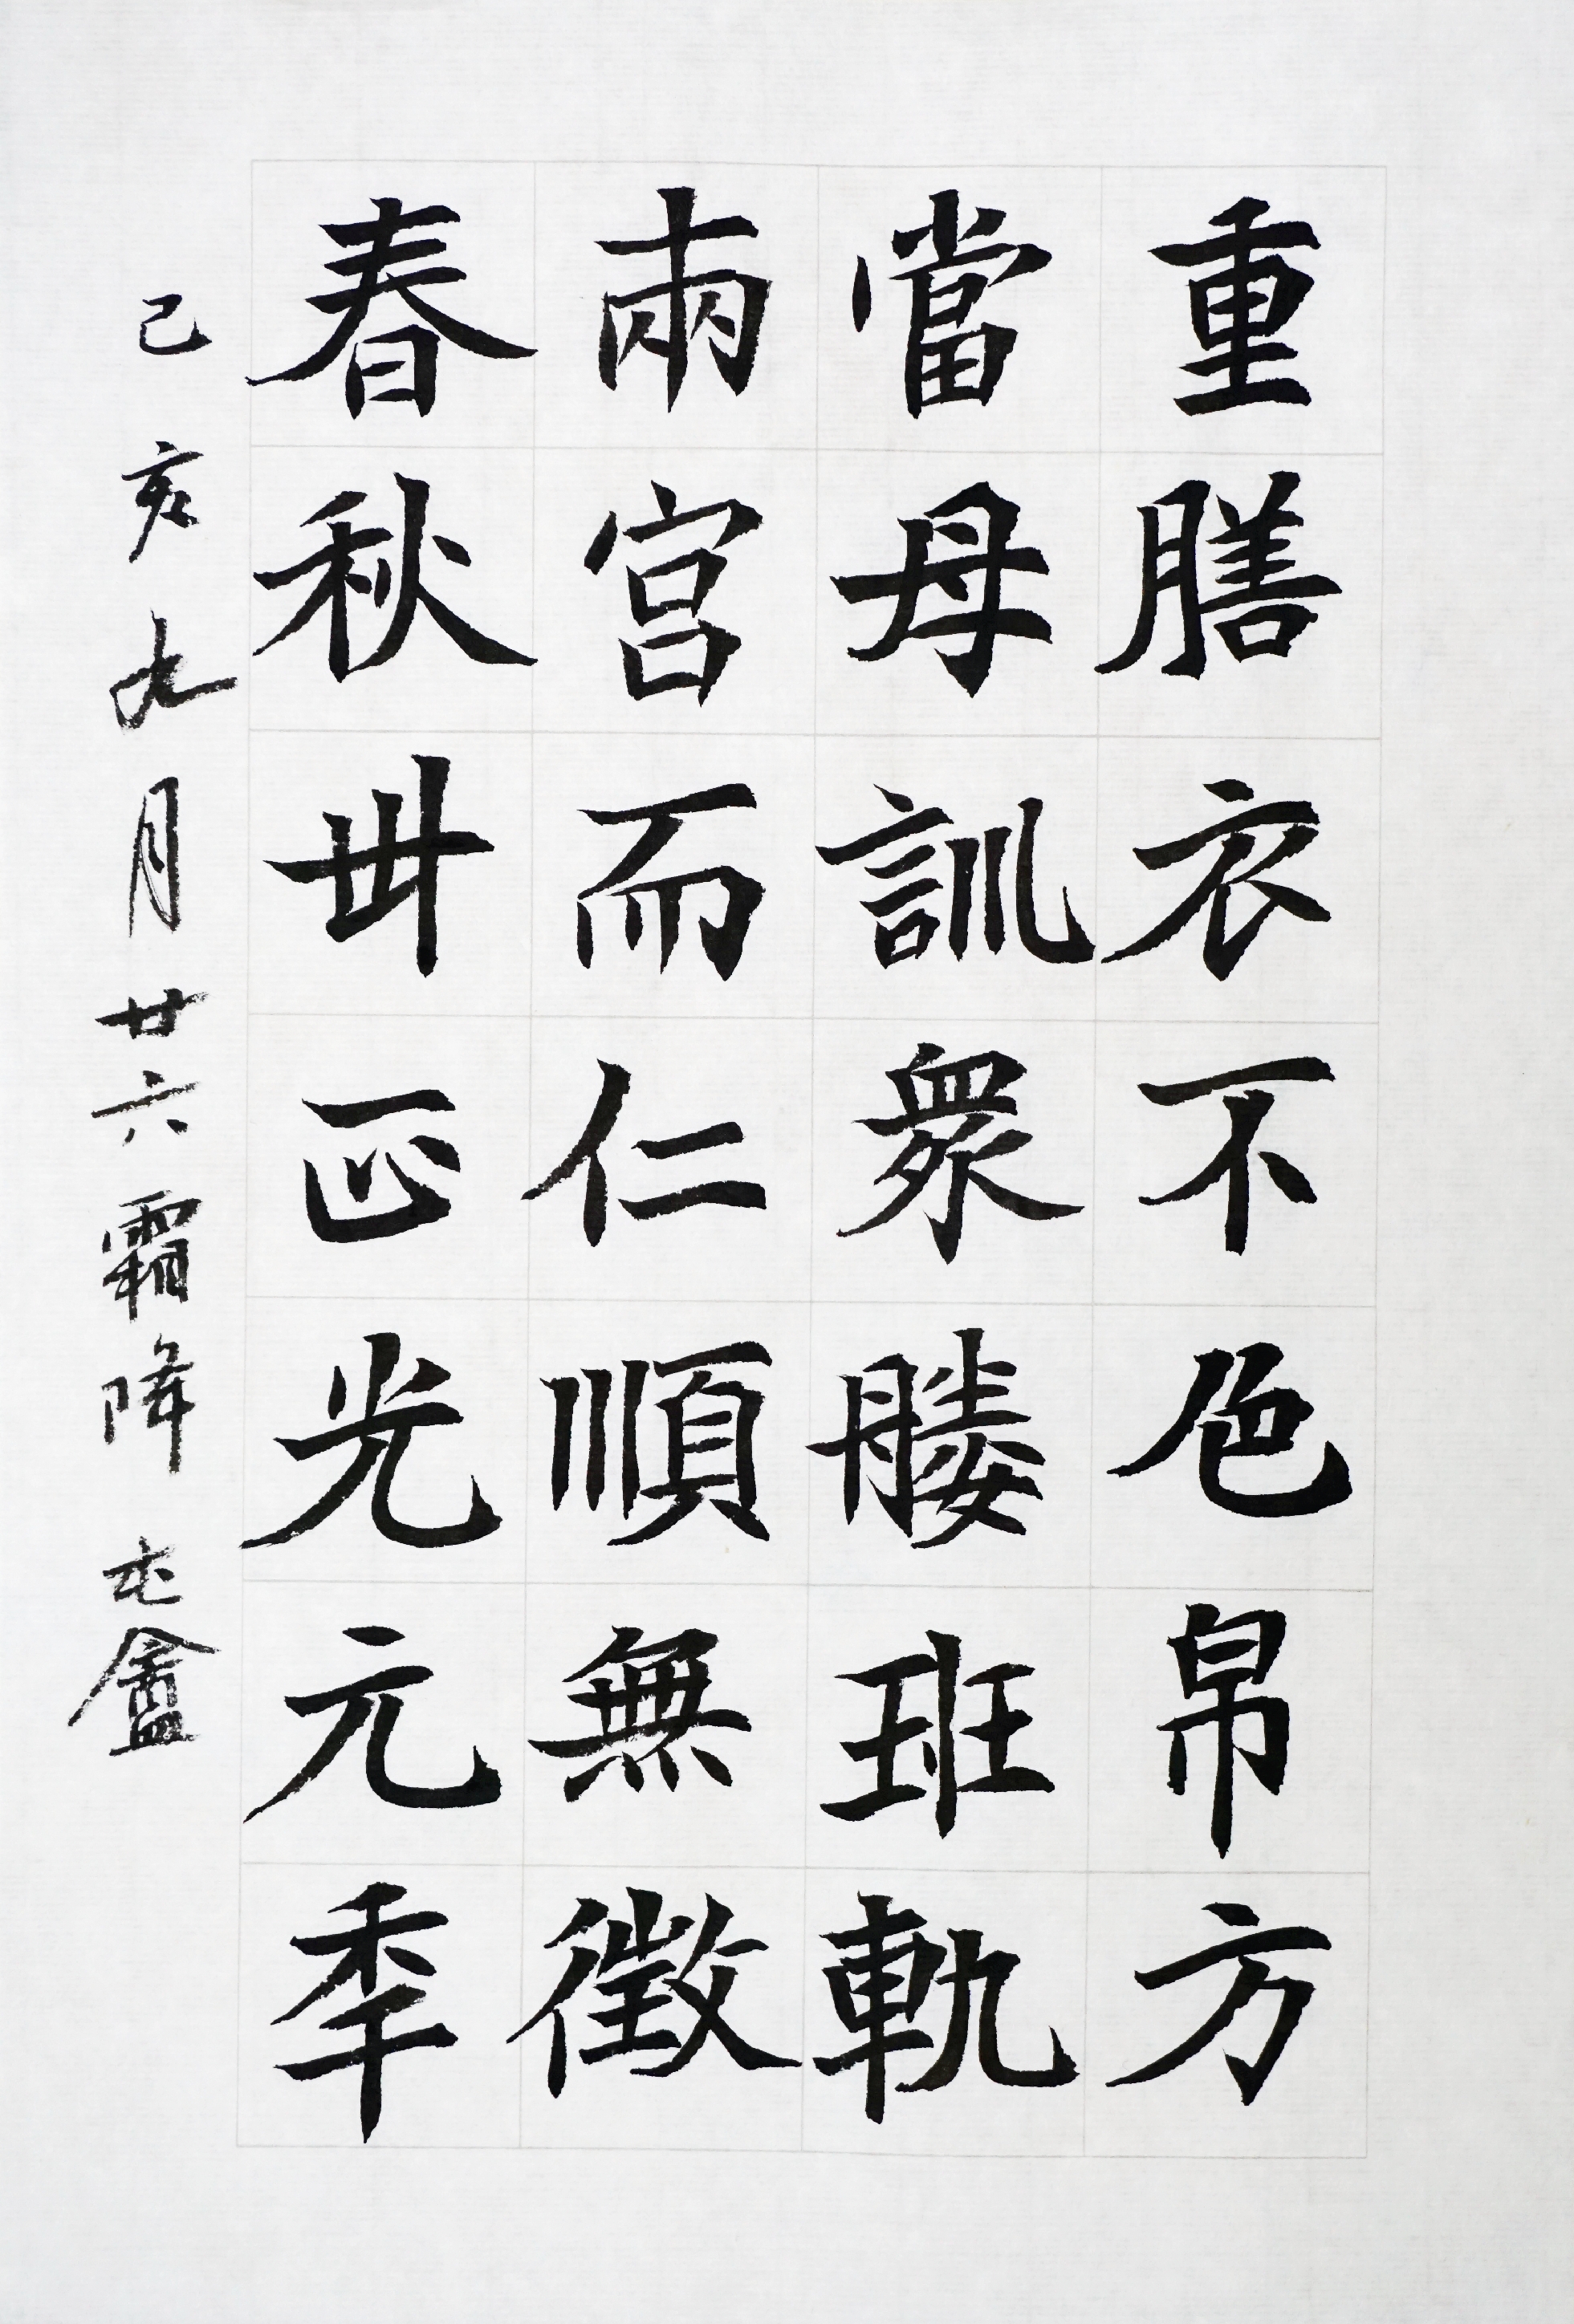 重膳衣不色帛方
當母訓衆媵班軌
兩宮而仁順無徵
春秋丗正光元年
己亥九月廿六霜降 屯盦